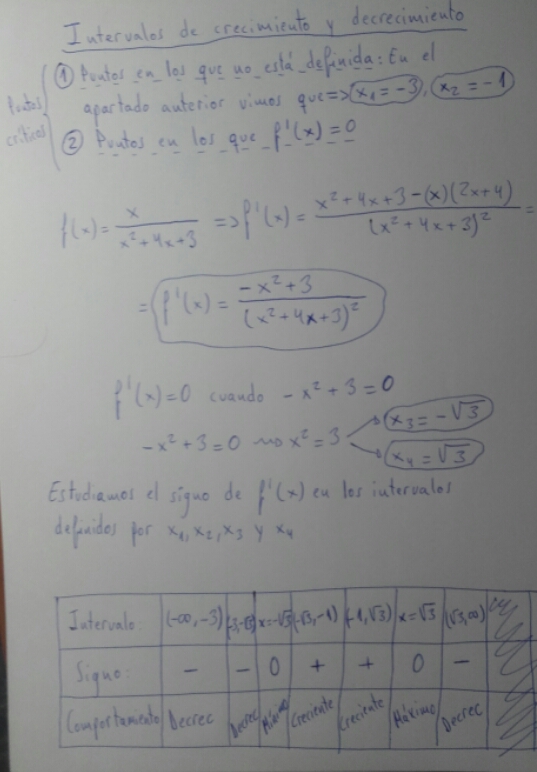 Intervalos de crecimiento y decrecimiento
Puntos críticos
① Puntos en los que no está definida: En el
apartado anterior vimos que => x₁ = -3, x₂ = -1
② Puntos en los que f'(x) = 0
f(x) = x / (x² + 4x + 3) => f'(x) = (x² + 4x + 3 - (x)(2x + 4)) / (x² + 4x + 3)² =
= f'(x) = (-x² + 3) / (x² + 4x + 3)²
f'(x) = 0 cuando -x² + 3 = 0
-x² + 3 = 0 ⇝ x² = 3 → x₃ = -√3
→ x₄ = √3
Estudiamos el signo de f'(x) en los intervalos
definidos por x₁, x₂, x₃ y x₄
Intervalo: (-∞, -3) (-3, -√3) x = -√3 (-√3, -1) (-1, √3) x = √3 (√3, ∞)
Signo: - - 0 + + 0 -
Comportamiento Decrec Decrec Mínimo Creciente Creciente Máximo Decrec